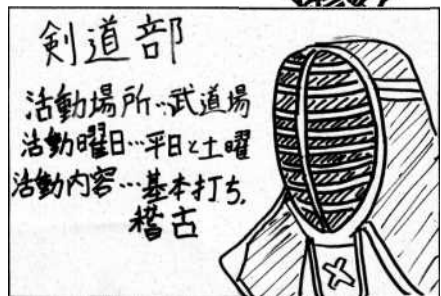 剣道部
活動場所…武道場
活動曜日…平日と土曜
活動内容…基本打ち、
稽古